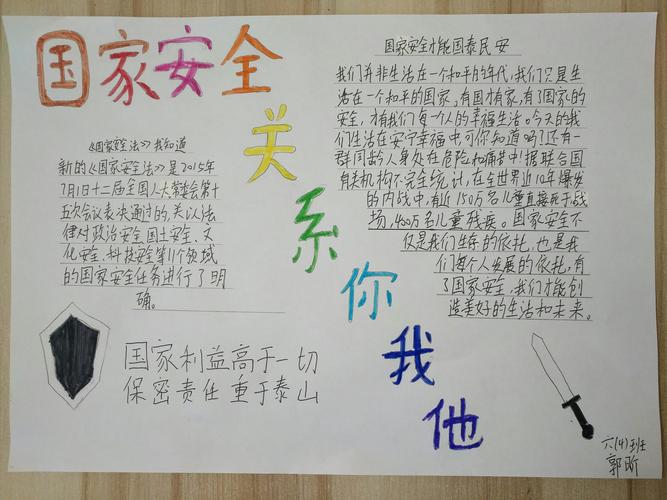 国家安全
关
系
你
我
他
《国家安全法》我知道
新的《国家安全法》是2015年
7月1日十二届全国人大常委会第十
五次会议表决通过的,关以法
律对政治安全、国土安全、文
化安全、科技安全等11个领域
的国家安全任务进行了明
确。
国家利益高于一切
保密责任重于泰山
国家安全才能国泰民安
我们并非生活在一个和平的年代,我们只是生
活在一个和平的国家,有国才有家,有了国家的
安全,才有我们每个人的幸福生活。今天的我
们生活在安宁幸福中,可你知道吗?还有一
群同龄人身处在危险和痛苦中!据联合国
有关机构不完全统计,在全世界近10年爆发
的内战中,有近150万名儿童直接死于战
场,400万名儿童残疾。国家安全不
仅是我们生存的依托,也是我
们每个人发展的依托,有
了国家安全,我们才能创
造美好的生活和未来。
六(4)班
郭昕